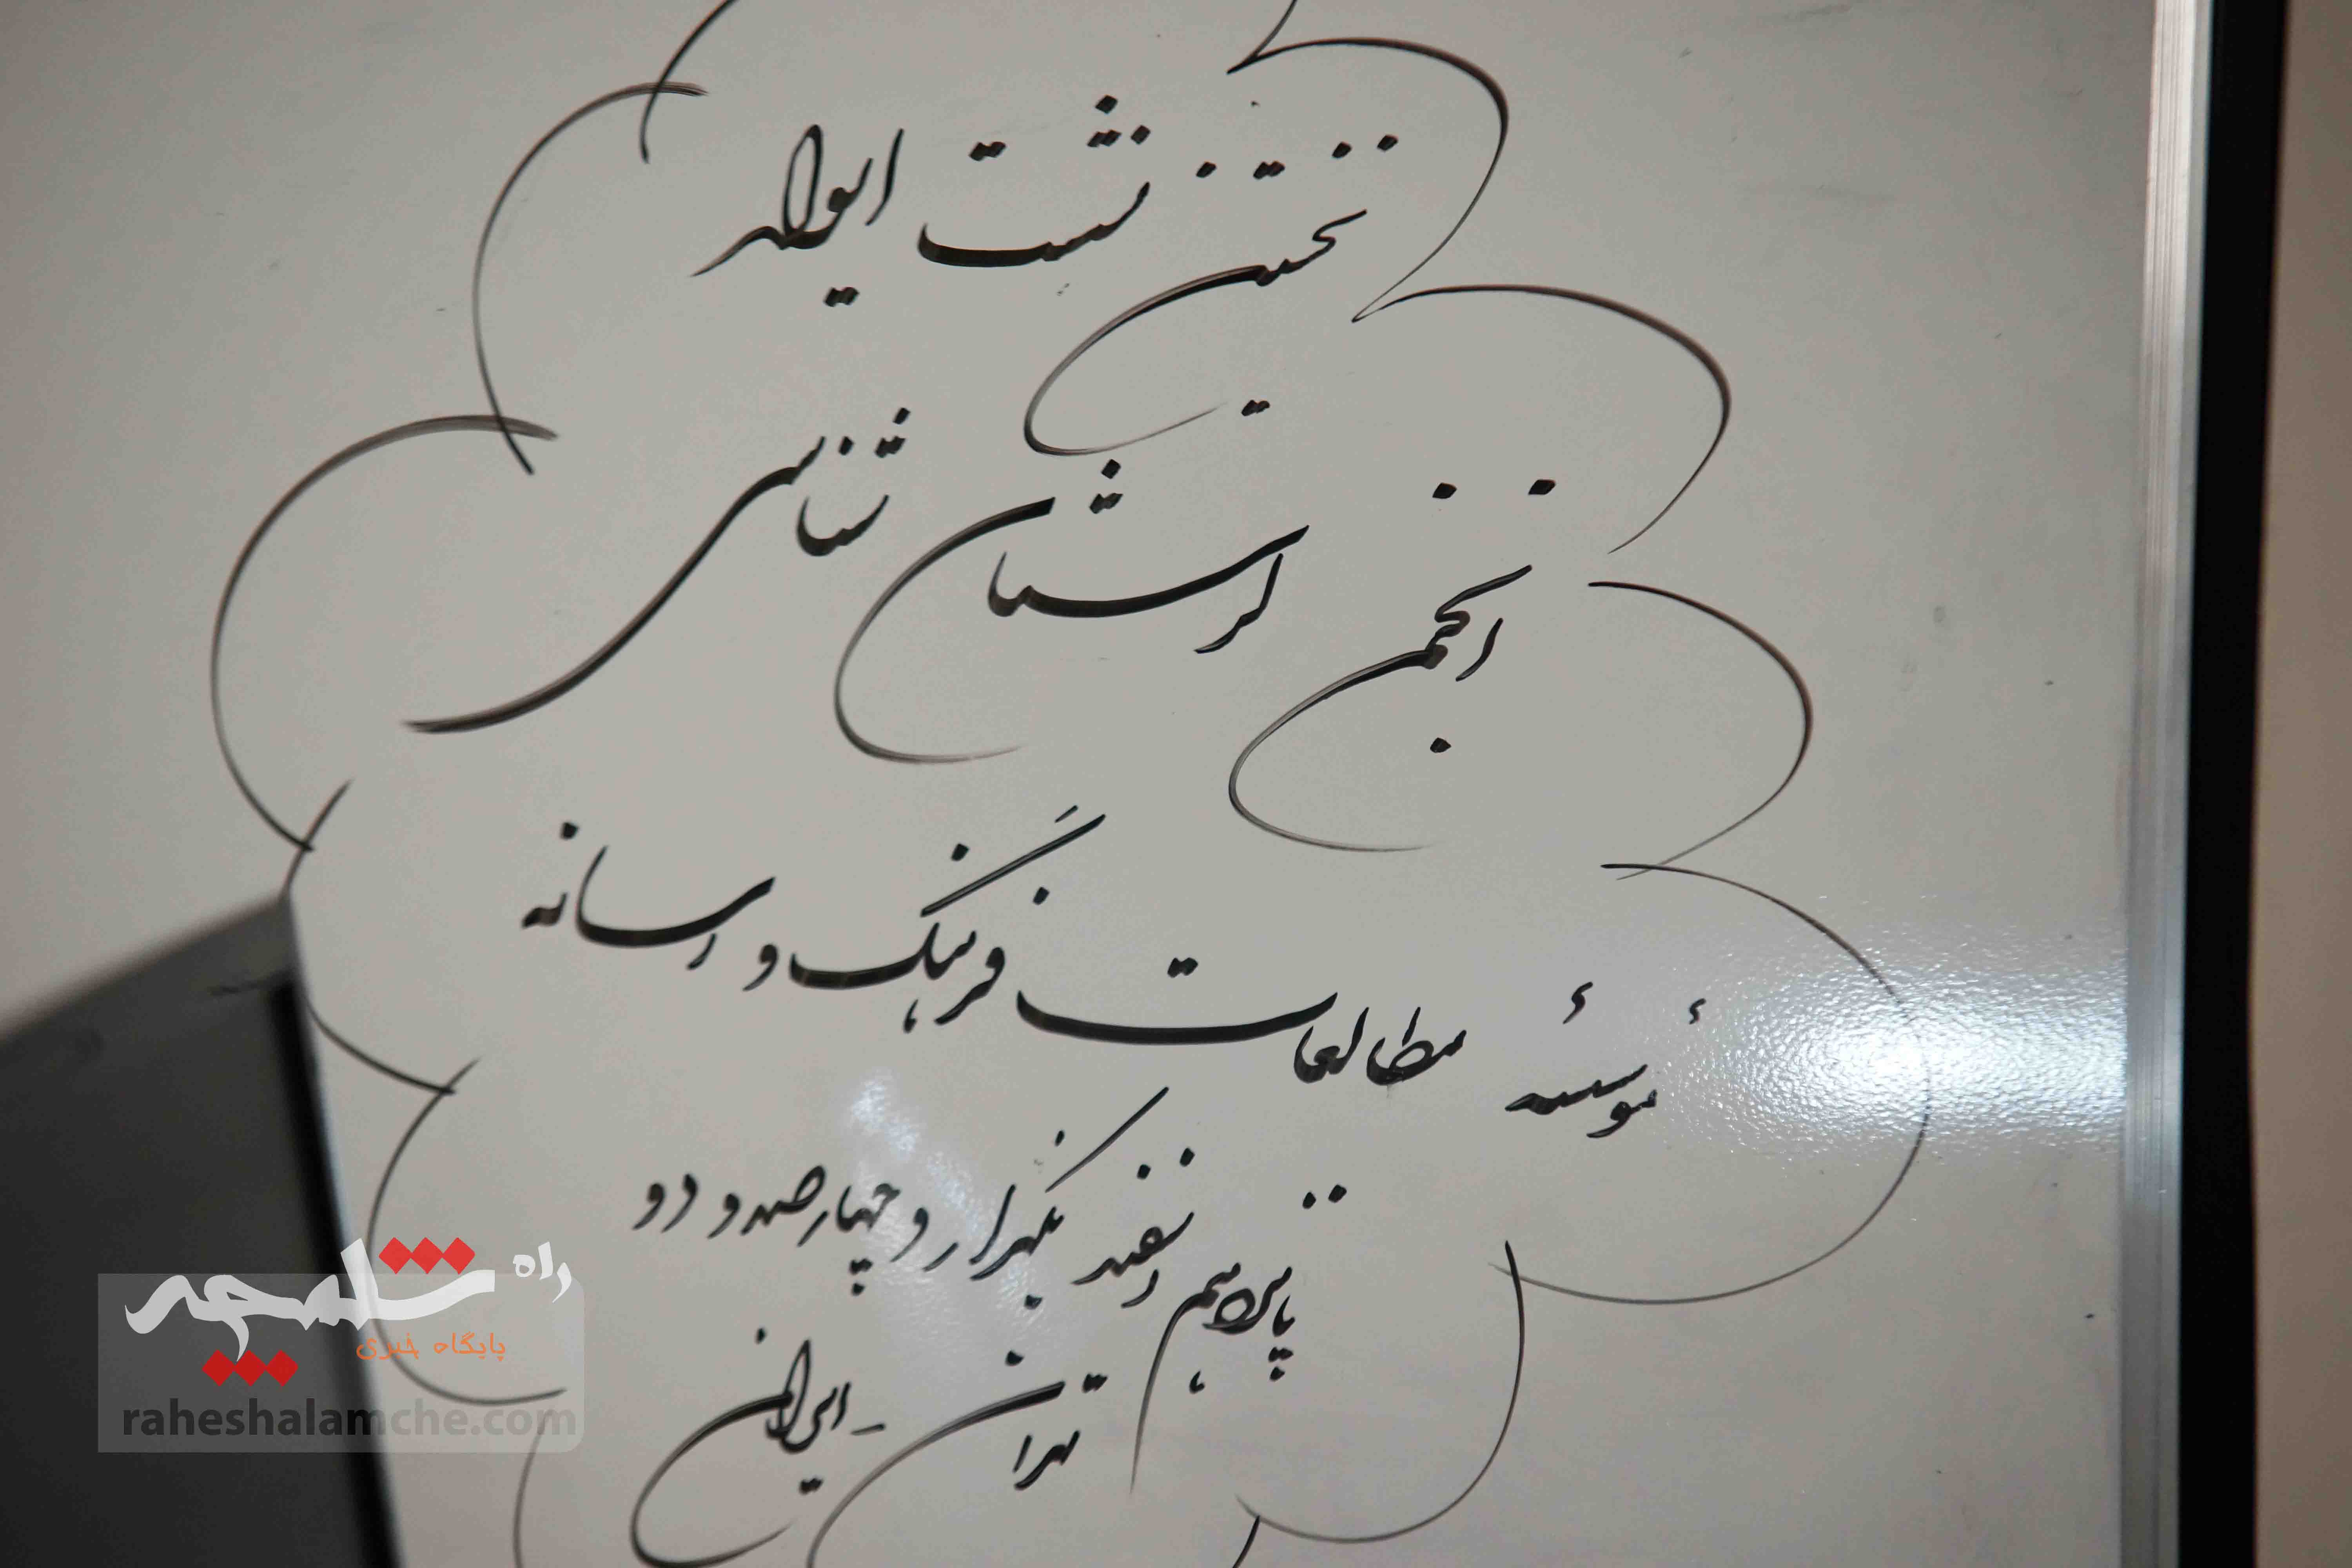 نخستین نشست
انجمن لرستان شناسی
مؤسسۀ مطالعات فَرهنگ و رسانه
پانزدهم اسفند یکهزار و چهارصد و دو
تهران - ایران
راه شلمچه
پایگاه خبری
raheshalamche.com